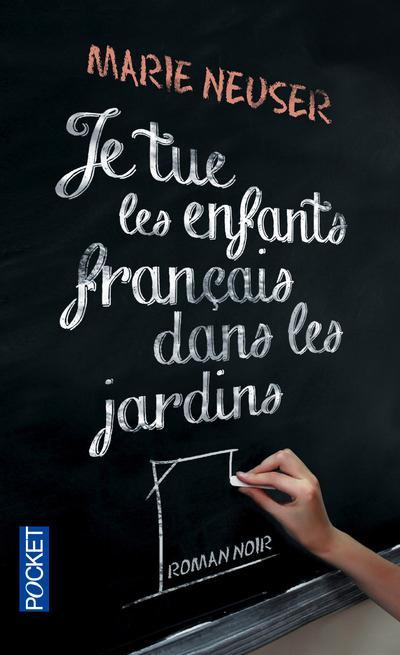 MARIE NEUSER
Je tue
les enfants
français
dans les
jardins
ROMAN NOIR
POCKET